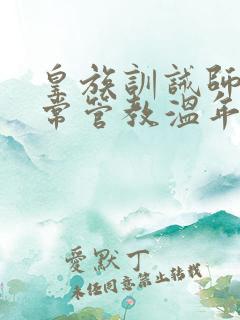 皇族訓誡師
常管教溫年
愛默丁
未经同意禁止转载